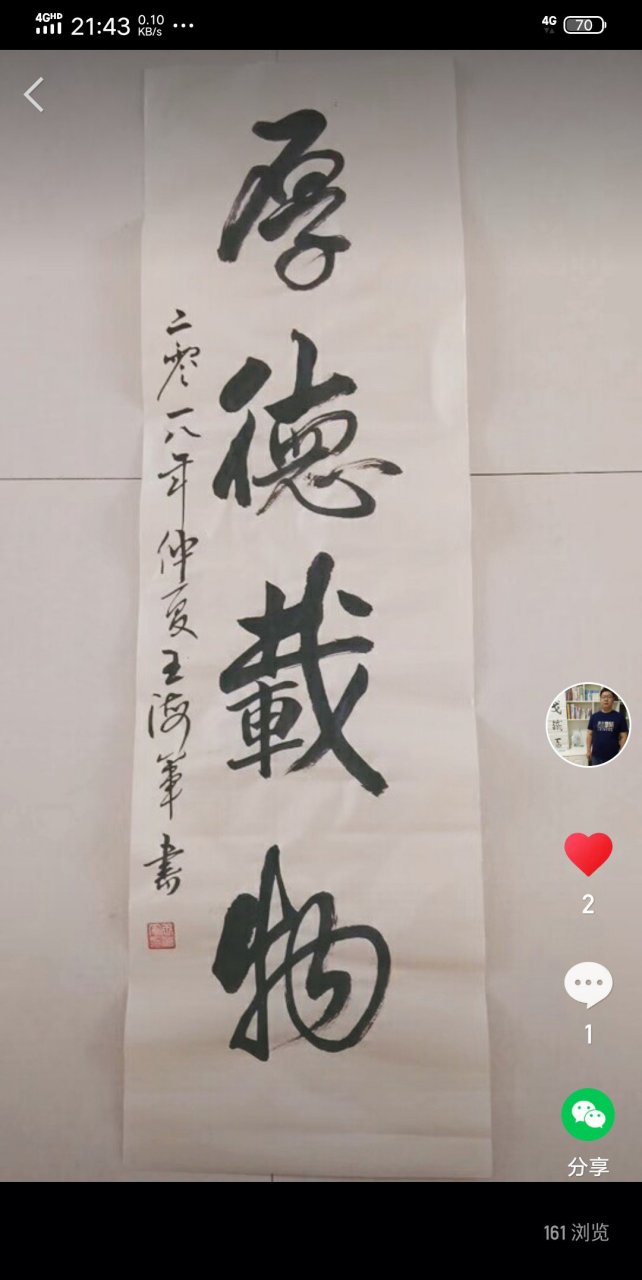 4GHD 21:43 0.10 KB/s ...
4G 70
厚德載物
二零一八年仲夏王海军書
2
1
分享
161 浏览